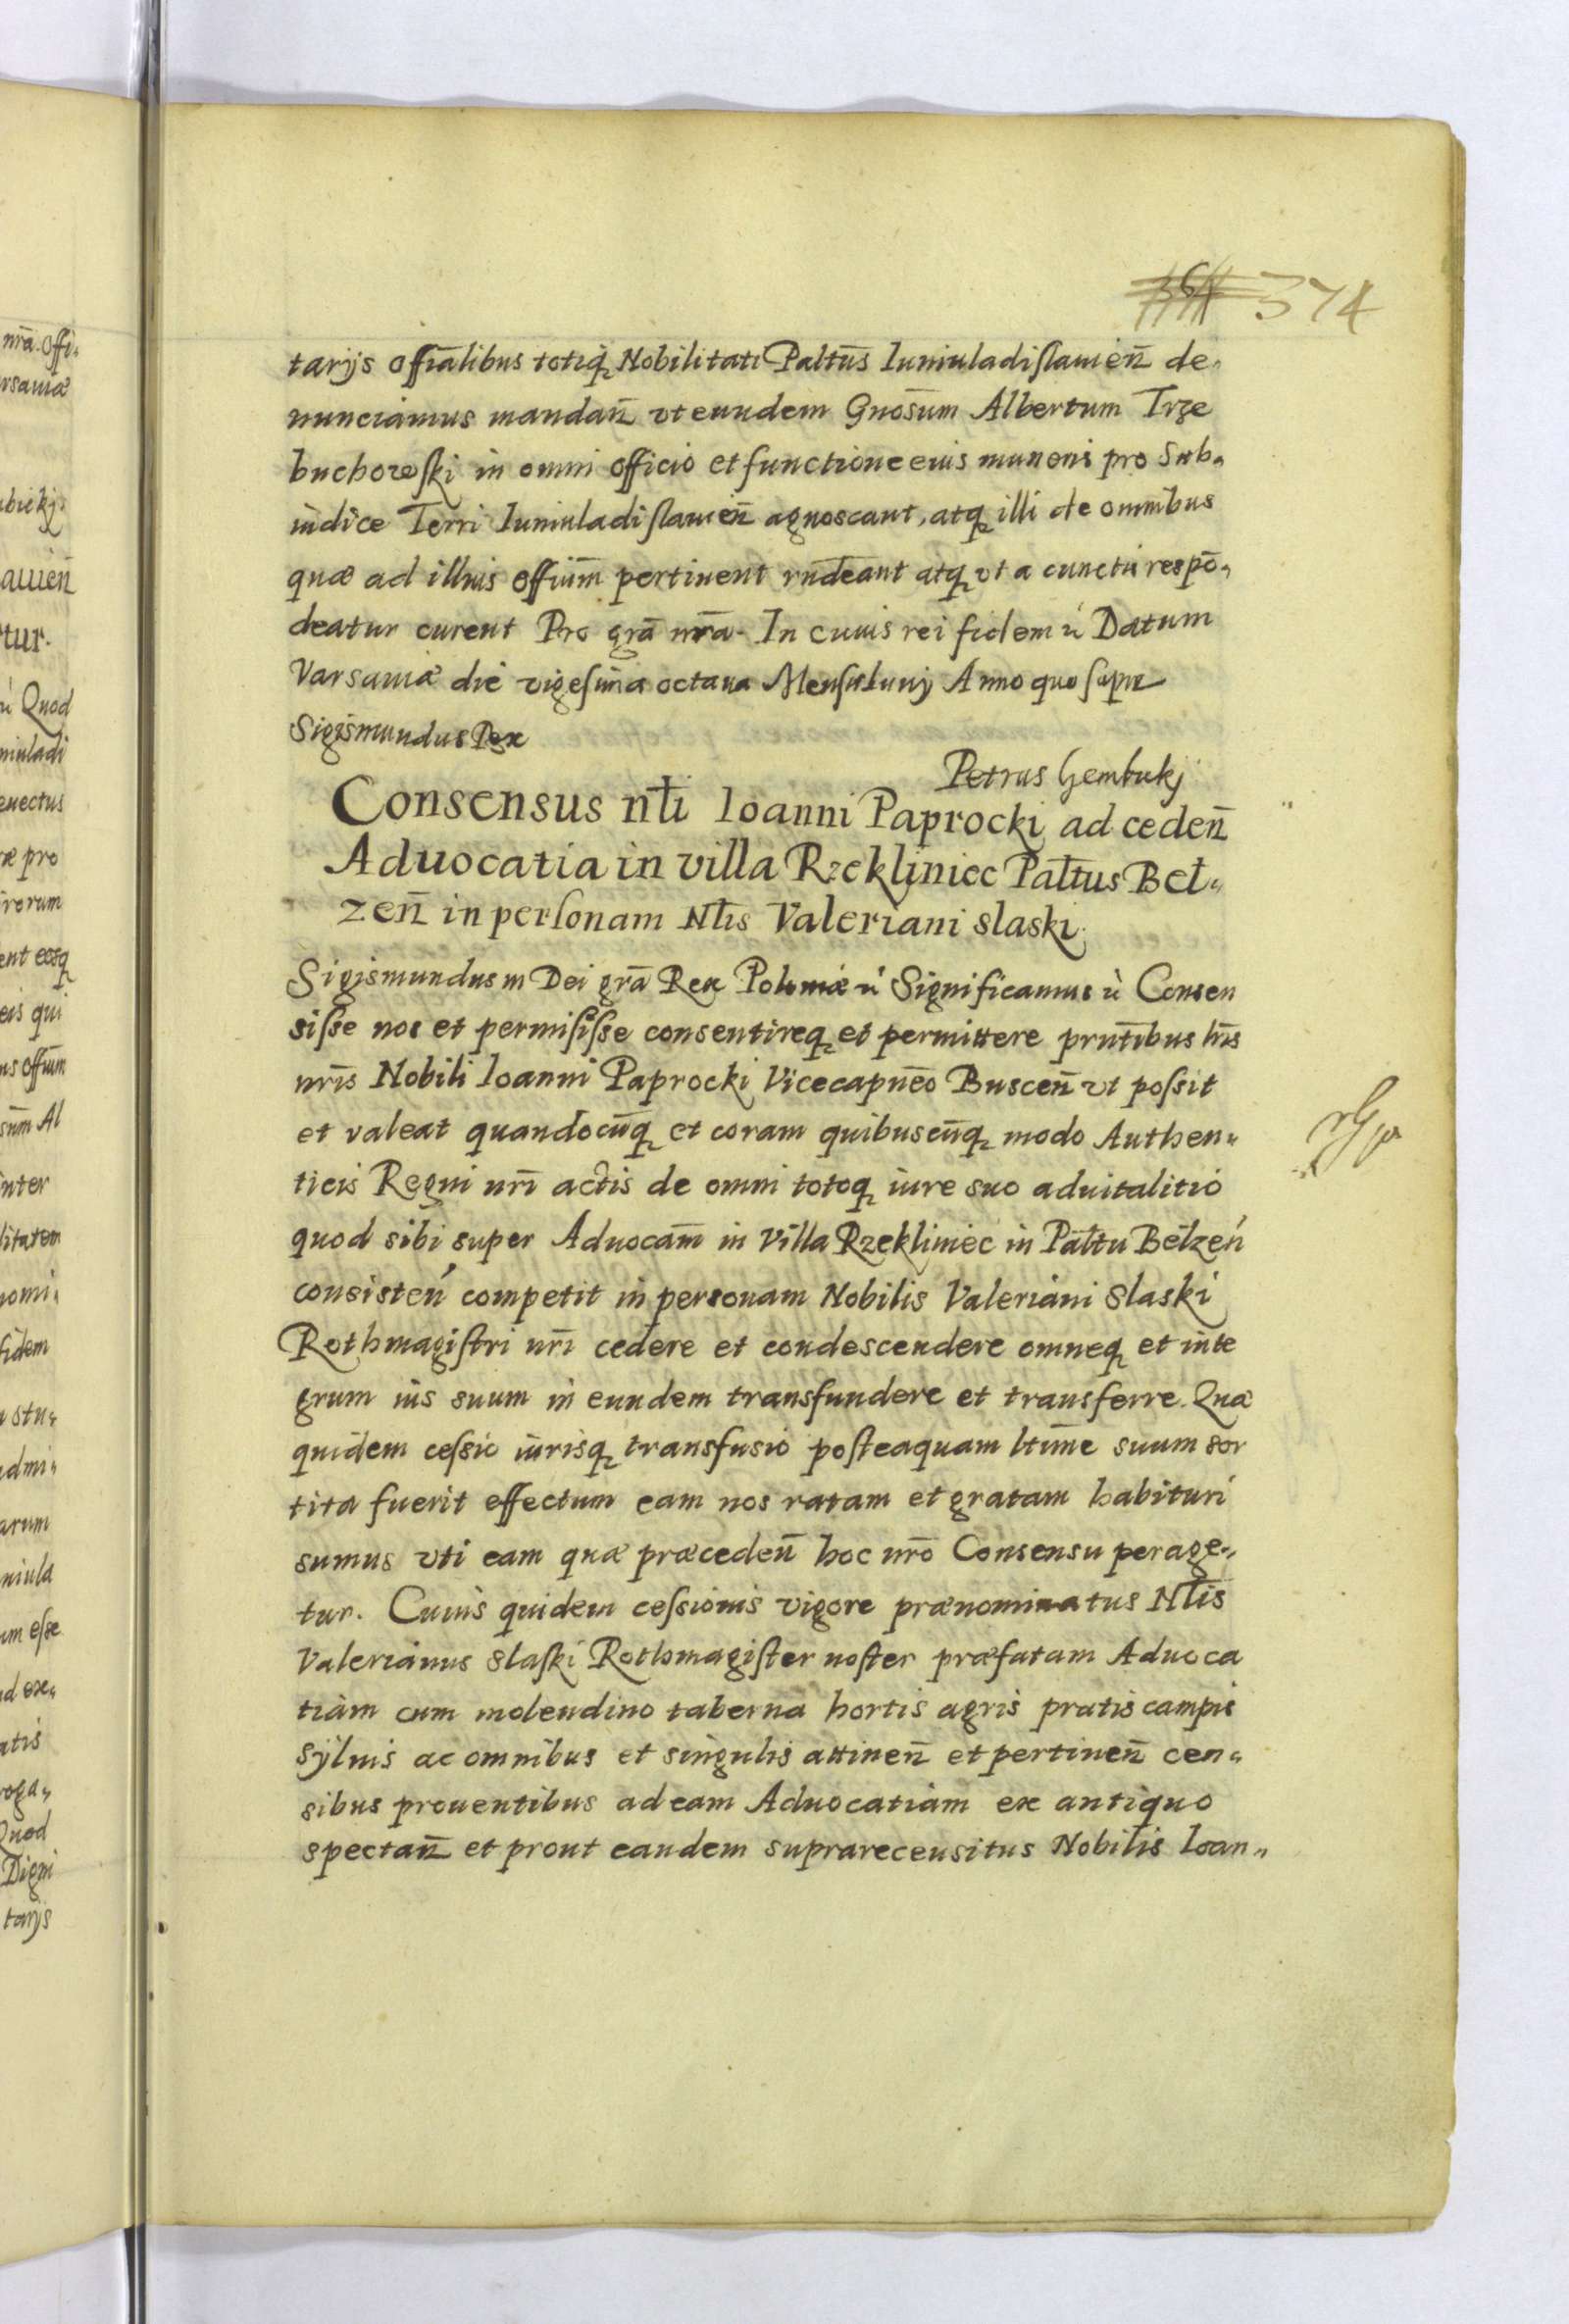 374
tarijs offīalibus totiq₃ Nobilitati Paltūs Iuniuladislauień de„
nunciamus mandań vt eundem Gnōsum Albertum Trze
buchowski in omni officio et functione eius muneris pro Sub„
iudice Terri Iuniuladislauień agnoscant, atq₃ illi de omnibus
quæ ad illius offīum pertinent rn̄deant atq₃ vt a cunctis respō„
deatur curent Pro grā nrā. In cuius rei fidem ù Datum
Varsauiæ die vigesima octaua Mensis Iunij Anno quo supra
Sigismundus Rex
Petrus Gembickj
Consensus nt̄li Ioanni Paprocki ad cedeń
Aduocatia in villa Rzekliniec Paltus Bel„
zeń in personam Nt̄lis Valeriani Slaski.
Sigismundus III Dei grā Rex Poloniæ ù Significamus ù Consen
sisse nos et permisisse consentireq₃ et permittere prn̄tibus lrīs
nrīs Nobili Ioanni Paprocki Vicecapnēo Busceń vt possit
et valeat quandocūq₃ et coram quibuscūq₃ modo Authen„
ticis Regni nrī actis de omni totoq₃ iure suo aduitalitio
quod sibi super Aduocam̄ in Villa Rzekliniec in Paltu Belzeń
consisteń competit in personam Nobilis Valeriani Slaski
Rothmagistri nrī cedere et condescendere omneq₃ et inte
grum ius suum in eundem transfundere et transferre. Quæ
quidem cessio iurisq₃ transfusio posteaquam ltīme suum sor
tita fuerit effectum eam nos ratam et gratam habituri
sumus vti eam quæ præcedeń hoc nrō Consensu perage„
tur. Cuius quidem cessionis vigore prænominatus Nt̄lis
Valerianus Slaski Rothmagister noster præfatam Aduoca
tiam cum molendino taberna hortis agris pratis campis
syluis ac omnibus et singulis attineń et pertineń cen„
sibus prouentibus ad eam Aduocatiam ex antiquo
spectań et prout eandem suprarecensitus Nobilis Ioan„